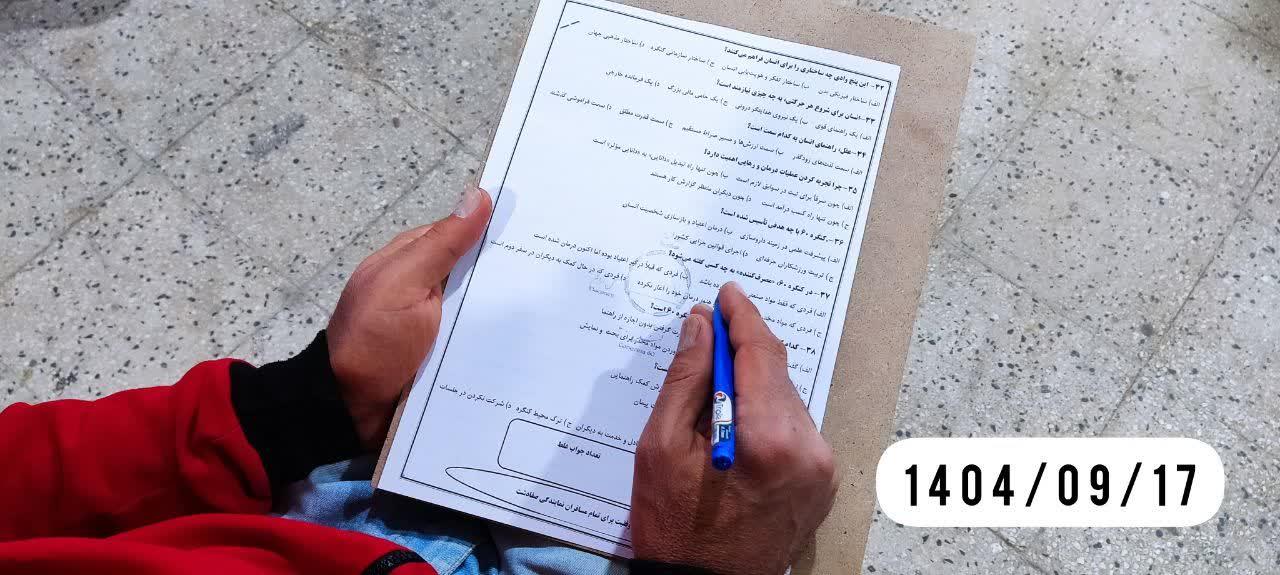 ۳۲- این پنج وادی چه ساختاری را برای انسان فراهم می‌کنند؟
الف) ساختار فیزیکی بدن ب) ساختار تفکر و هویت‌یابی انسان ج) ساختار سازمانی کنگره د) ساختار مذهبی جهان
۳۳- انسان برای شروع هر حرکتی، به چه چیزی نیازمند است؟
الف) یک راهنمای قوی ب) یک نیروی هدایتگر درونی ج) یک حامی مالی بزرگ د) یک فرمانده خارجی
۳۴- عقل، راهنمای انسان به کدام سمت است؟
الف) سمت لذت‌های زودگذر ب) سمت ارزش‌ها و مسیر صراط مستقیم ج) سمت قدرت مطلق د) سمت فراموشی گذشته
۳۵- چرا تجربه کردن عملیات درمان و رهایی اهمیت دارد؟
الف) چون صرفاً برای ثبت در سوابق لازم است ب) چون تنها راه تبدیل «دانایی» به «دانایی مؤثر» است
ج) چون تنها راه کسب درآمد است د) چون دیگران منتظر گزارش کار هستند
۳۶- کنگره ۶۰ با چه هدفی تأسیس شده است؟
الف) پیشرفت علمی در زمینه داروسازی ب) درمان اعتیاد و بازسازی شخصیت انسان
ج) تربیت ورزشکاران حرفه‌ای د) اجرای قوانین جزایی کشور
۳۷- در کنگره ۶۰، «مصرف‌کننده» به چه کسی گفته می‌شود؟
الف) فردی که فقط مواد صنعتی باشد ب) فردی که قبلاً درگیر اعتیاد بوده اما اکنون درمان شده است
ج) فردی که مواد مخدر هنوز درمان خود را آغاز نکرده د) فردی که در حال کمک به دیگران در سفر دوم است
۳۸- کدام کنگره ۶۰ است؟
الف) گفت گرفتن بدون اجازه از راهنما
ج) بردن مواد مخدر برای پخت و نمایش
است؟
کمک راهنمایی
پیمان
عدل و خدمت به دیگران ج) ترک محیط کنگره د) شرکت نکردن در جلسات
تعداد جواب غلط
موفقیت برای تمام مسافران نمایندگی
Congress 60
1404/09/17